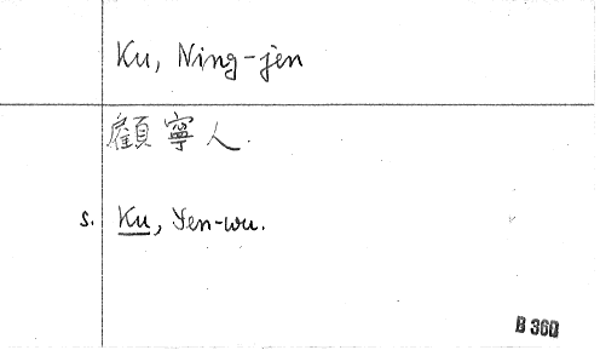 Ku, Ning-jen
顧寧人.
s. Ku, Yen-wu.
B 360